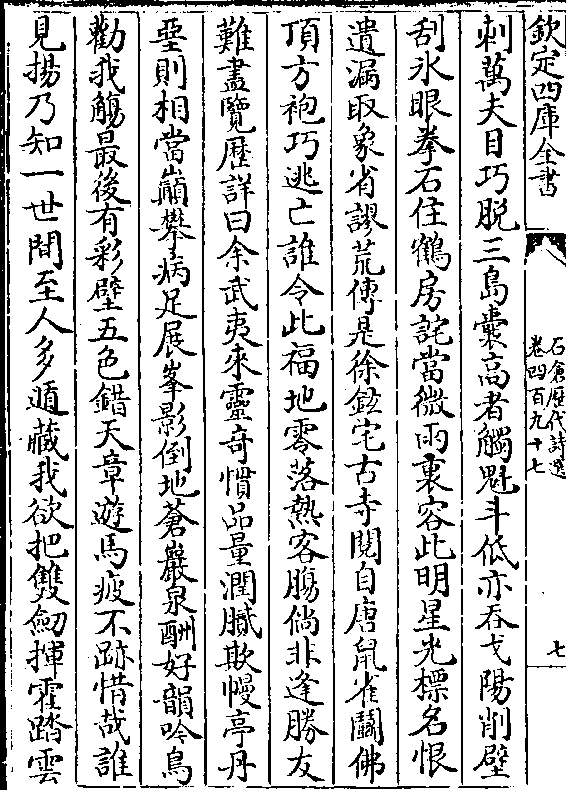 欽定四庫全書
石倉歷代詩選
卷四百九十七
七
刺萬夫目巧脱三島囊高者觸魁斗低亦吞弋陽削壁
刮氷眼拳石住鶴房詫當微雨裏容此明星光標名恨
遺漏取象省謬荒傳是徐鉉宅古寺閱自唐鼠雀鬭佛
頂方袍巧逃亡誰令此福地零落熱客腸倘非逢勝友
難盡覽歴詳曰余武夷來靈奇慣品量潤膩欺幔亭丹
壑則相當巔攀病足展峯影倒地蒼巖泉酬好韻吟鳥
勸我觴最後有彩壁五色錯天章遊馬疲不跡惜哉誰
見揚乃知一世間至人多遁藏我欲把雙劒揮霍踏雲